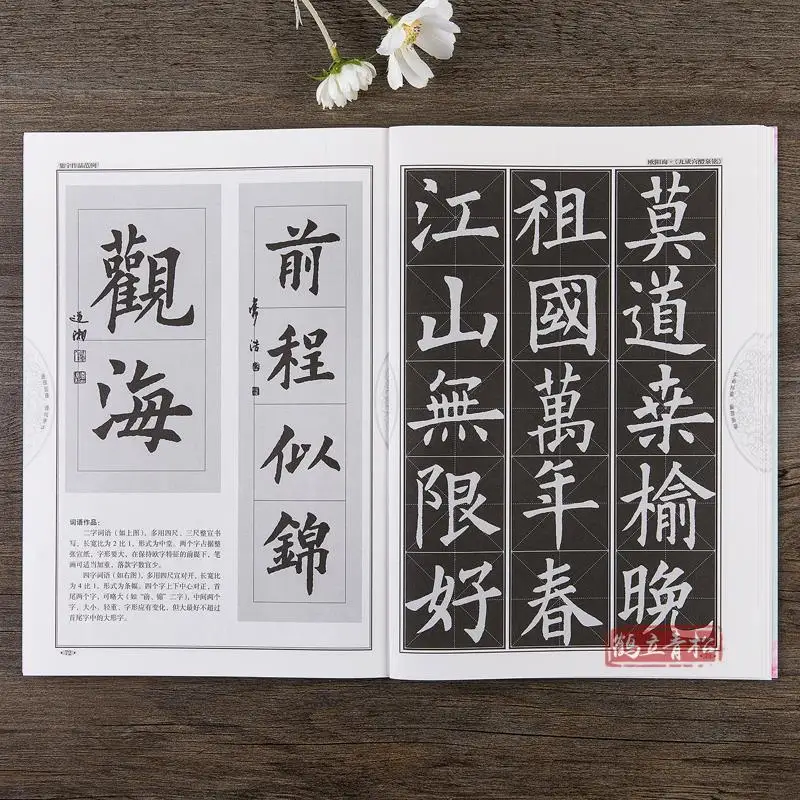 集字作品范例
觀海
前程似錦
词语作品：
二字词语（如上图），多用四尺、三尺整宣书
写，长宽比为 2 比 1，形式为中堂。两个字占据整
张宣纸，字形要大，在保持欧字特征的前提下，笔
画可适当加重，落款字数宜少。
四字词语（如右图），多用四尺宣对开，长宽比
为 4 比 1，形式为条幅。四个字上下中心对正，首
尾两个字，可略大（如“前、锦”二字），中间两个
字，大小、轻重、字形应有变化，但大最好不超过
首尾字中的大形字。
72
欧阳询·《九成宫醴泉铭》
莫道桒榆晚
祖國萬年春
江山無限好
鹤立青松